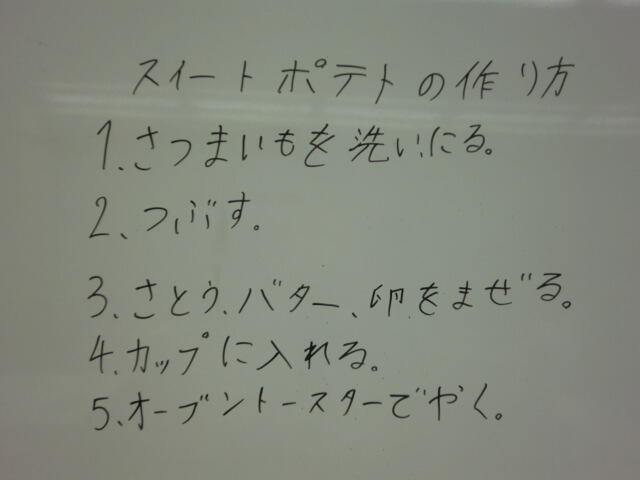 スイートポテトの作り方
1、さつまいもを洗い、にる。
2、つぶす。
3、さとう、バター、卵をまぜる。
4、カップに入れる。
5、オーブントースターでやく。